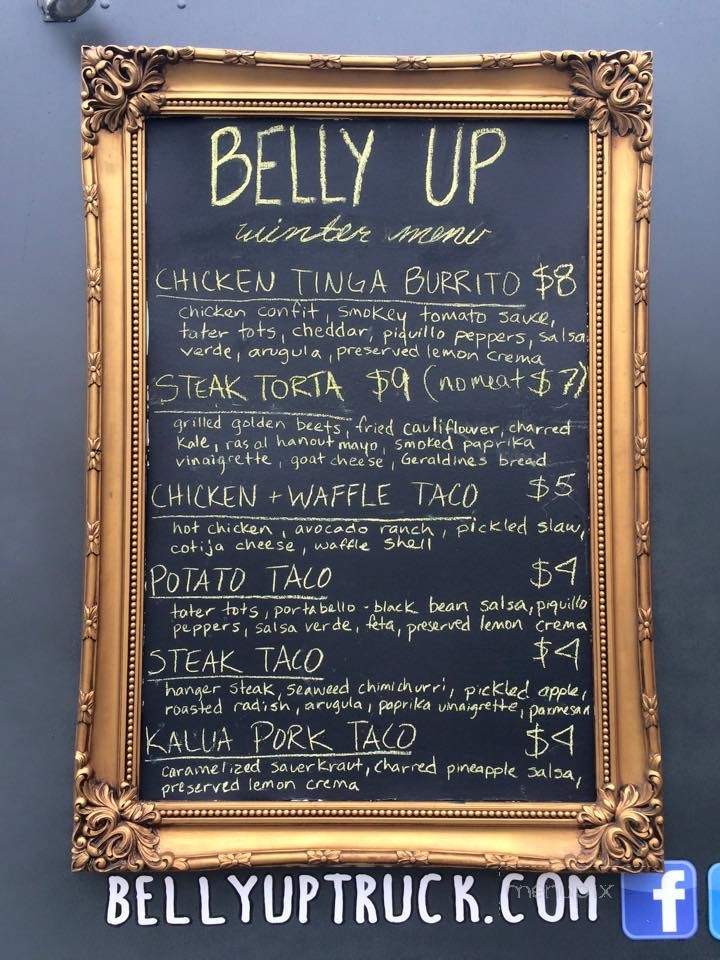 BELLY UP
winter menu
CHICKEN TINGA BURRITO $8
chicken confit, smokey tomato sauce,
tater tots, cheddar, piquillo peppers, salsa
verde, arugula, preserved lemon crema
STEAK TORTA $9 (no meat $7)
grilled golden beets, fried cauliflower, charred
kale, ras al hanout mayo, smoked paprika
vinaigrette, goat cheese, Geraldines bread
CHICKEN + WAFFLE TACO $5
hot chicken, avocado ranch, pickled slaw,
cotija cheese, waffle shell
POTATO TACO $4
tater tots, portabello-black bean salsa, piquillo
peppers, salsa verde, feta, preserved lemon crema
STEAK TACO $4
hanger steak, seaweed chimichurri, pickled apple,
roasted radish, arugula, paprika vinaigrette, parmesan
KALUA PORK TACO $4
caramelized sauerkraut, charred pineapple salsa,
preserved lemon crema
BELLYUPTRUCK.COM f
menupix